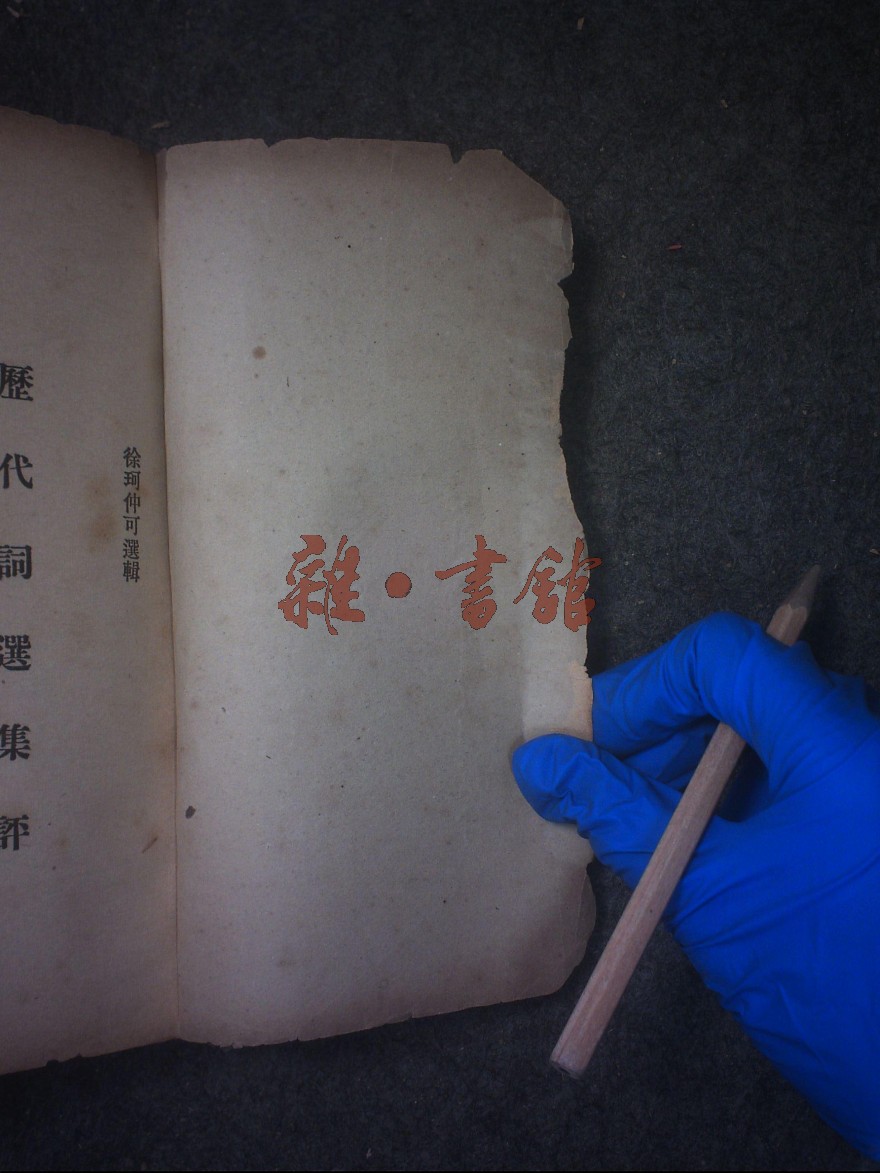 徐珂仲可選輯
歷代詞選集評
雜·書館